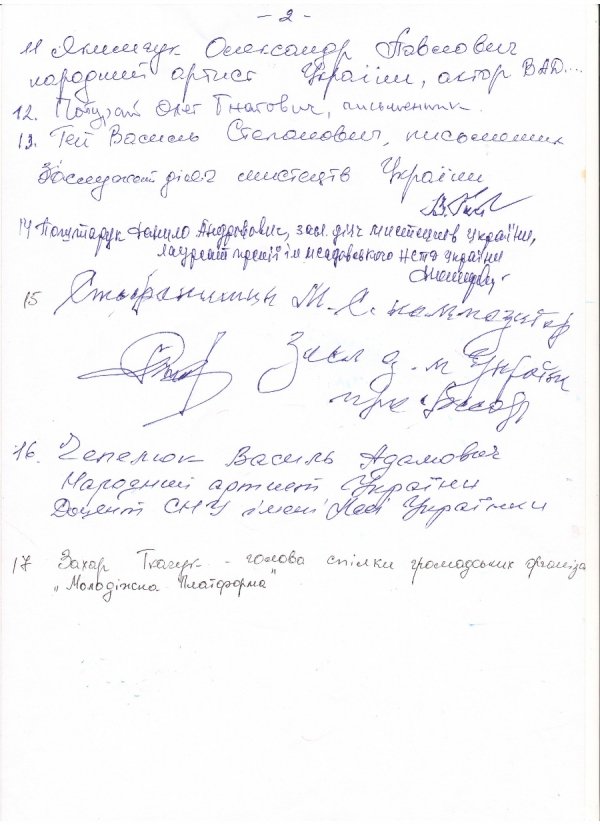 - 2 -
11 Якимчук Олександр Павлович
народний артист України, актор ВАД...
12. Олег Гнатович, письменник.
13. Гей Василь Степанович, письменник
Заслужений діяч мистецтв України
14 Поштарук Данило Андрійович, засл. діяч мистецтв України,
лауреат премії ім НСТД України
15 Стефанишин М. С. композитор
Засл д. м України
16. Чепелюк Василь Адамович
Народний артист України
Доцент СНУ імені Лесі Українки
17 Захар Ткачук - голова спілки громадських організа
"Молодіжна Платформа"